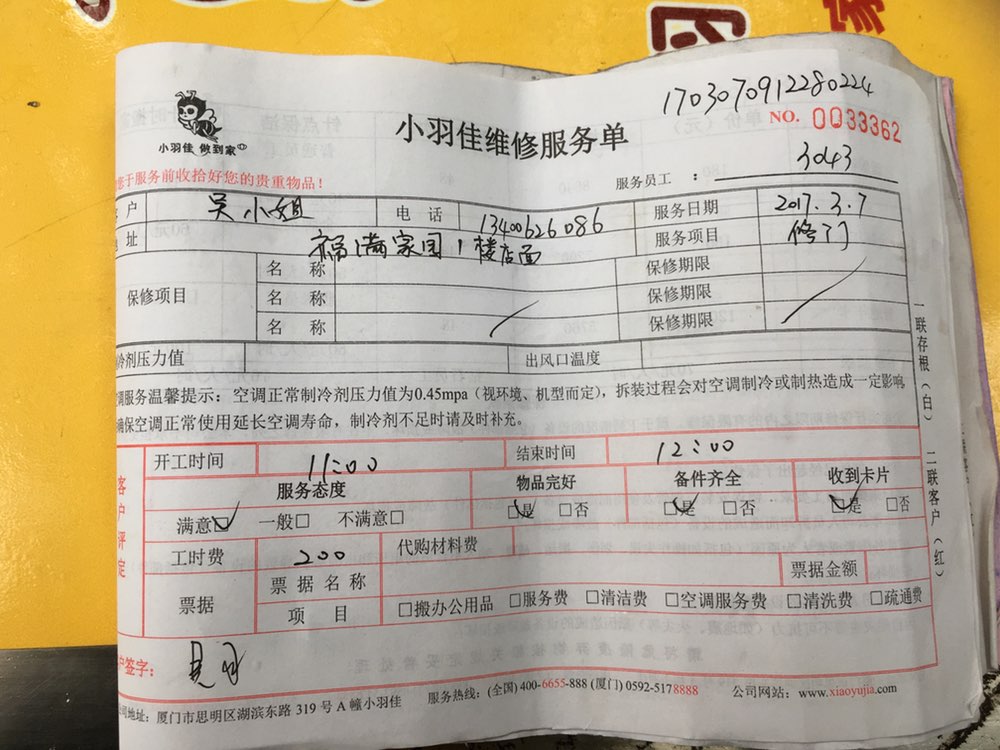 1703070912280224
NO. 0033362
小羽佳 做到家
小羽佳维修服务单
您于服务前收拾好您的贵重物品！
服务员工 ： 3043
户 吴小姐 电 话 13400626086 服务日期 2017.3.7
址 福满家园1楼店面 服务项目 修门
保修项目 名 称 保修期限
名 称 保修期限
名 称 保修期限
冷剂压力值 出风口温度
调服务温馨提示：空调正常制冷剂压力值为0.45mpa（视环境、机型而定），拆装过程会对空调制冷或制热造成一定影响
确保空调正常使用延长空调寿命，制冷剂不足时请及时补充。
一联存根（白） 二联客户（红）
客户评定
开工时间 11:00 结束时间 12:00
服务态度 物品完好 备件齐全 收到卡片
满意☑ 一般□ 不满意□ ☑是 □否 ☑是 □否 ☑是 □否
工时费 200 代购材料费
票据 票据名称 票据金额
项 目 □搬办公用品 □服务费 □清洁费 □空调服务费 □清洗费 □疏通费
户签字：
公司地址：厦门市思明区湖滨东路 319 号 A 幢小羽佳 服务热线：(全国) 400-6655-888 (厦门) 0592-5178888 公司网站：www.xiaoyujia.com